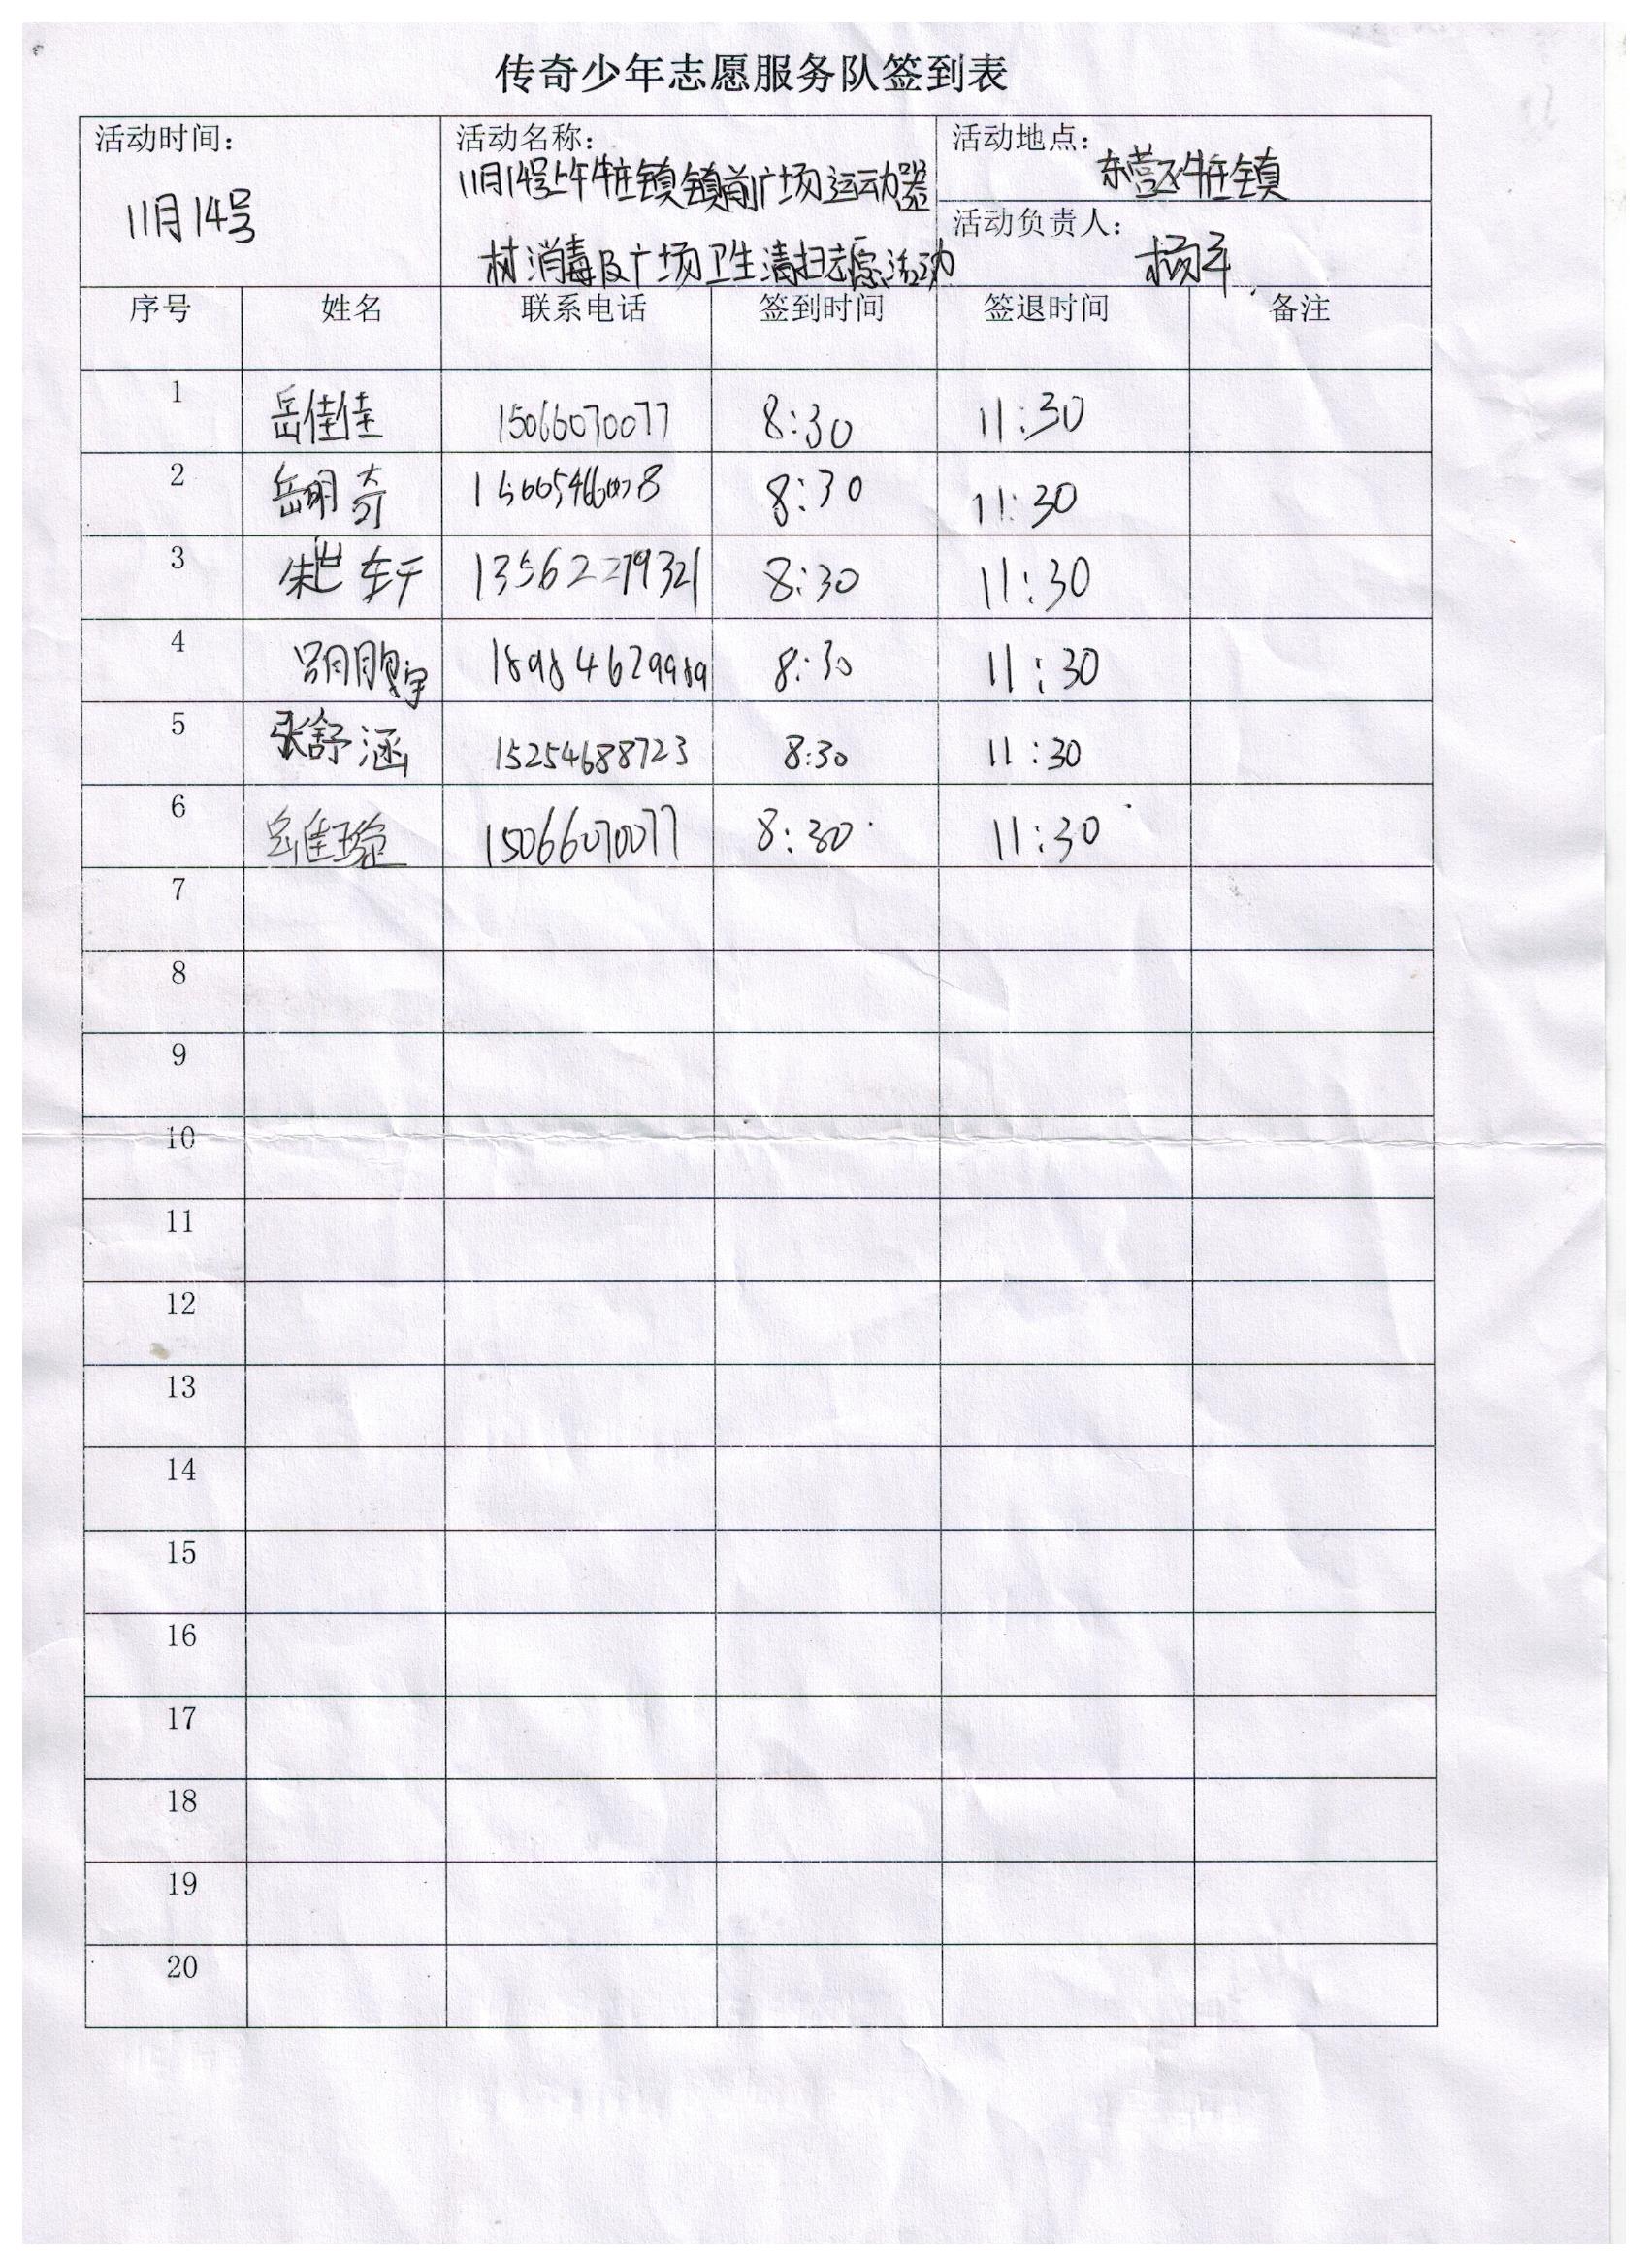 传奇少年志愿服务队签到表
活动时间：
11月14号
活动名称：
11月14号上午牛庄镇镇前广场运动器
材消毒及广场卫生清扫志愿活动
活动地点：
东营区牛庄镇
活动负责人：
杨军
序号 姓名 联系电话 签到时间 签退时间 备注
1 岳佳佳 15066070077 8:30 11:30
2 岳明奇 8:30 11:30
3 朱世轩 13562279321 8:30 11:30
4 8:30 11:30
5 张舒涵 15254688723 8:30 11:30
6 15066070077 8:30 11:30
7
8
9
10
11
12
13
14
15
16
17
18
19
20